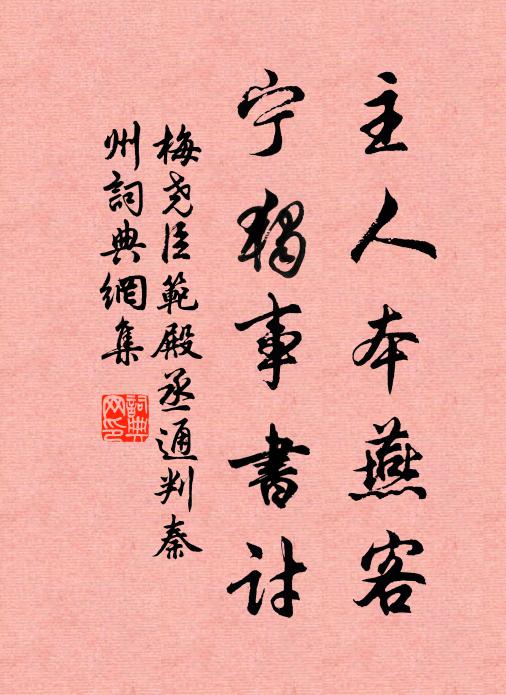 主人本燕客
宁独事书计
梅尧臣範殿丞通判秦
州詞典網集
詞典
网印